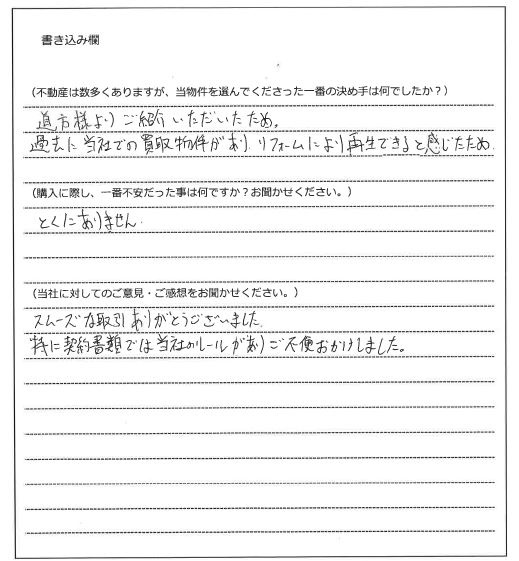 書き込み欄
(不動産は数多くありますが、当物件を選んでくださった一番の決め手は何でしたか?)
直方様よりご紹介いただいたため。
過去に当社での買取物件があり、リフォームにより再生できると感じたため
(購入に際し、一番不安だった事は何ですか?お聞かせください。)
とくにありません.
(当社に対してのご意見・ご感想をお聞かせください。)
スムーズな取引ありがとうございました
特に契約書類では当社のルールがありご不便おかけしました。